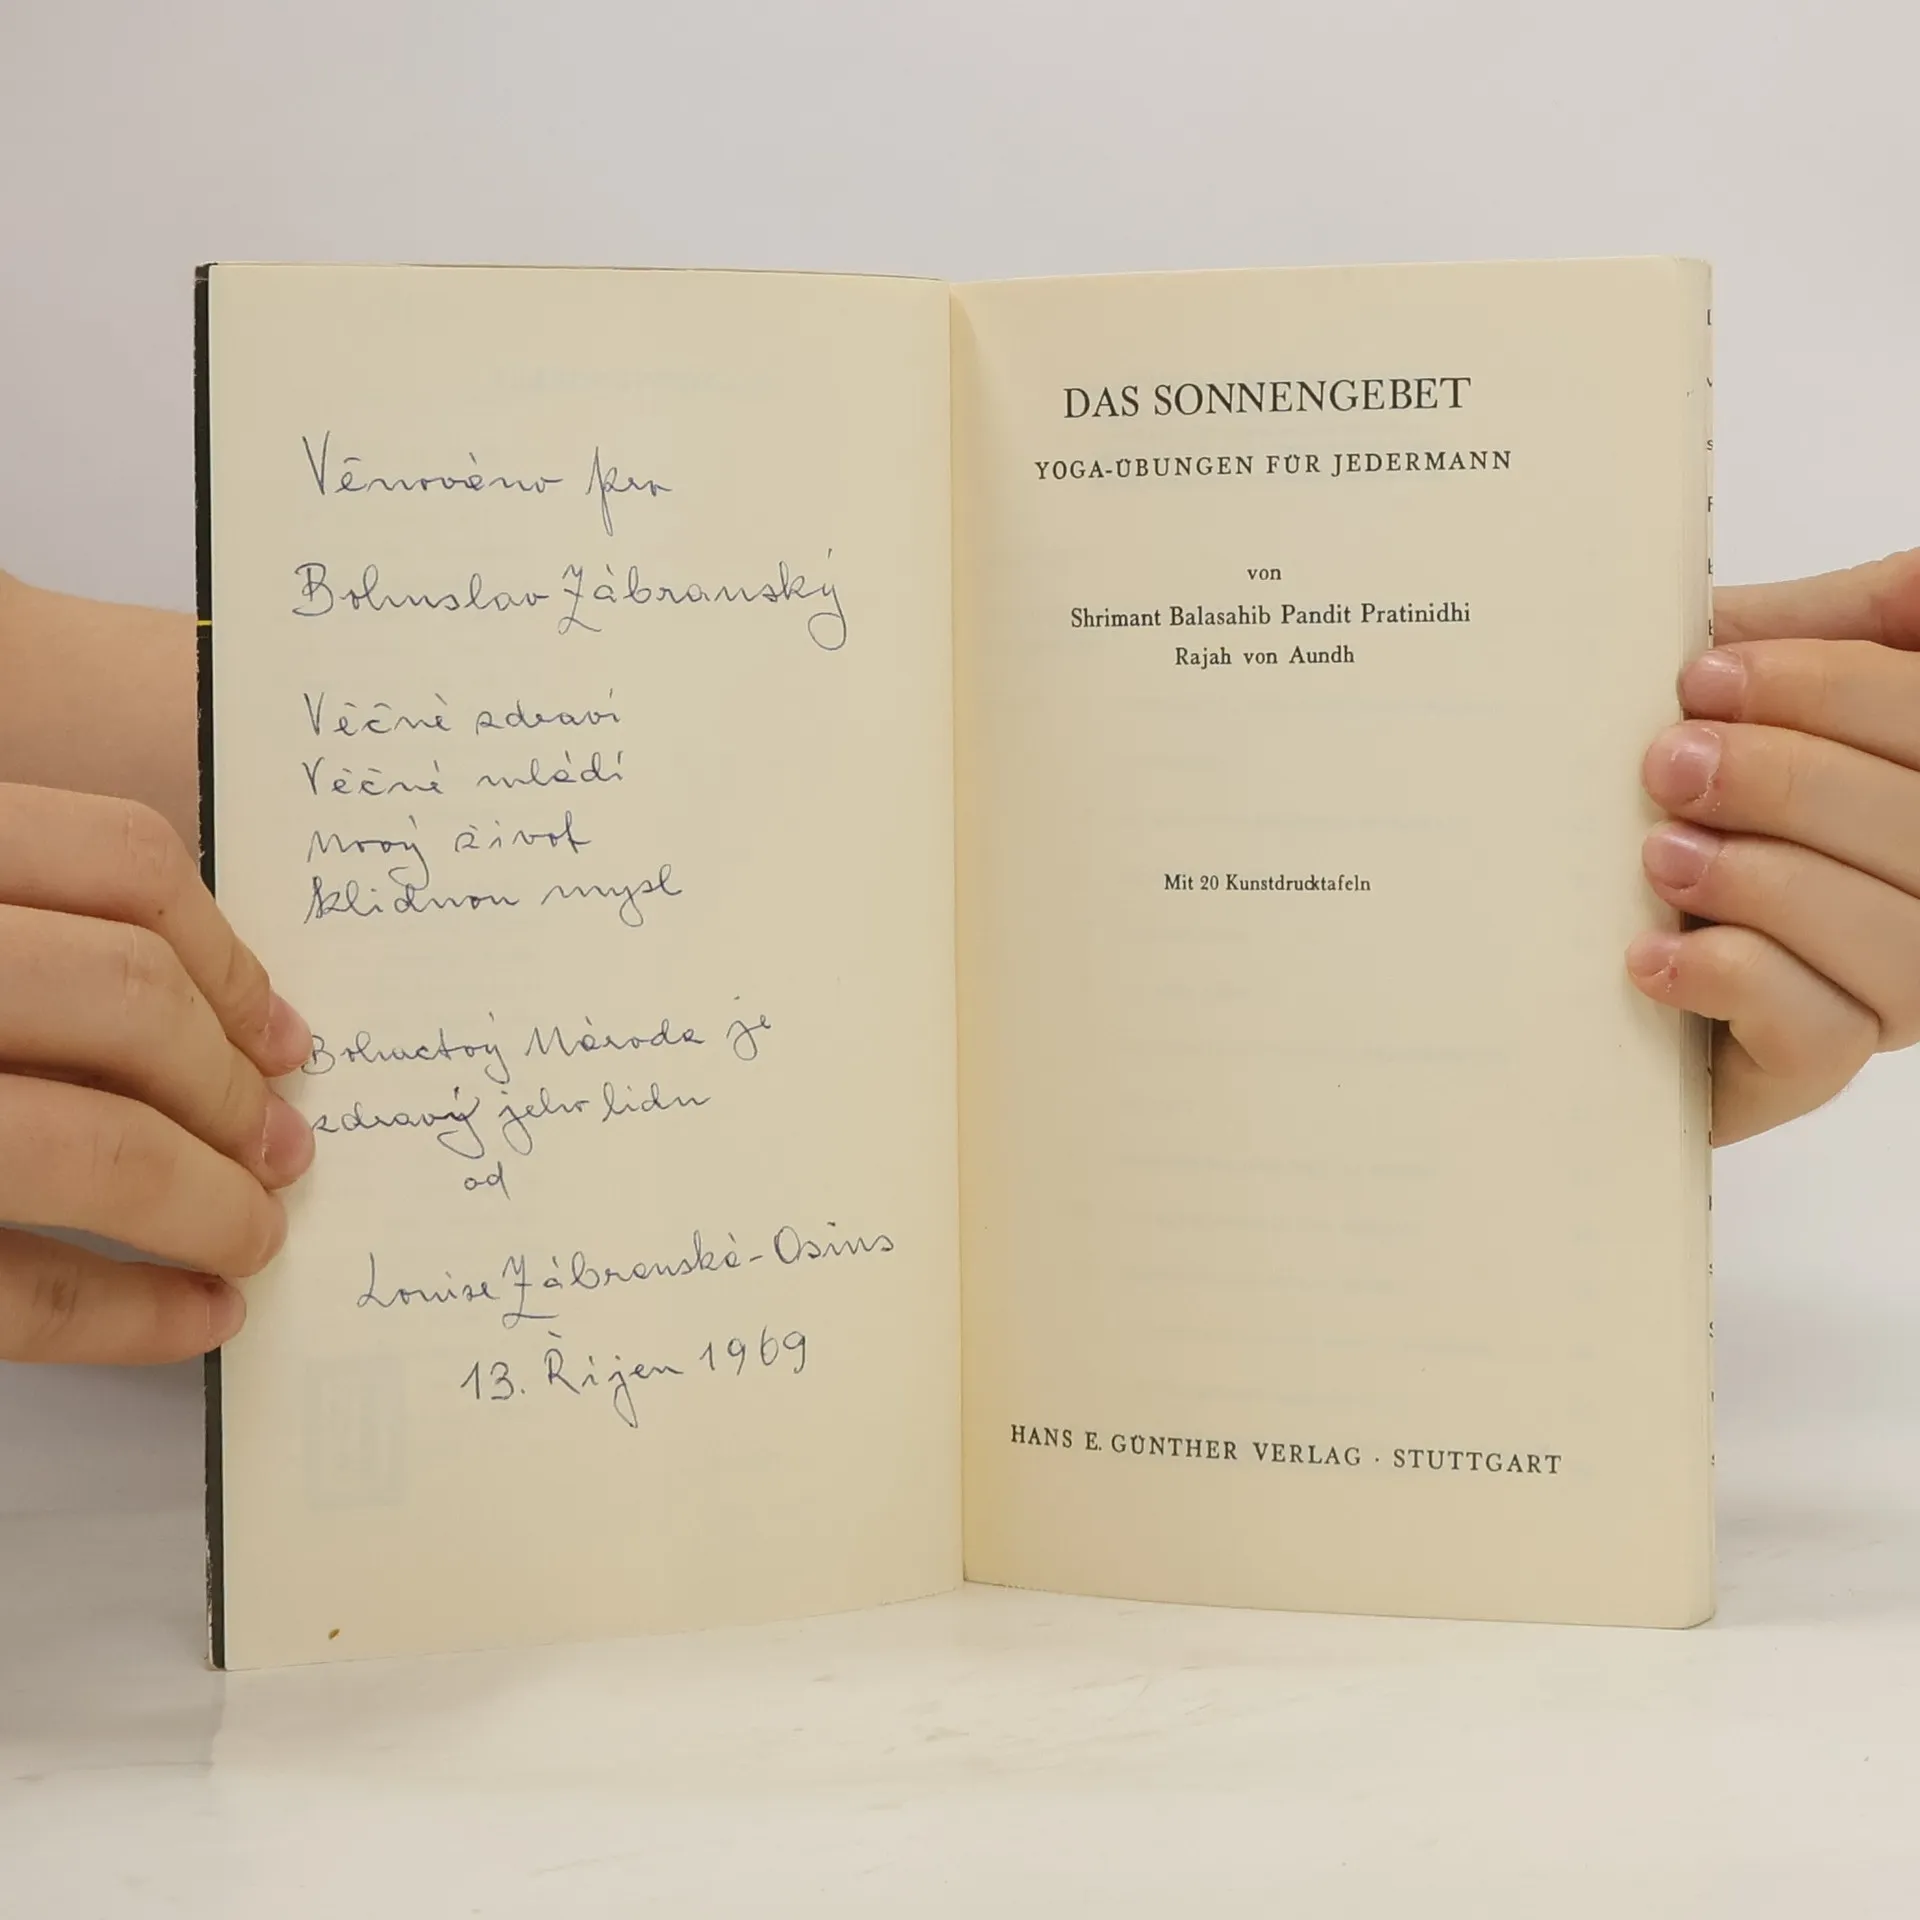 Věnováno pro
Bohuslav Zábranský
Věčné zdraví
Věčné mládí
Nový život
klidnou mysl
Bohactvý Národa je
zdravý jeho lidu
od
Louise Zábranská-Osius
13. Říjen 1969
DAS SONNENGEBET
YOGA-ÜBUNGEN FÜR JEDERMANN
von
Shrimant Balasahib Pandit Pratinidhi
Rajah von Aundh
Mit 20 Kunstdrucktafeln
HANS E. GÜNTHER VERLAG · STUTTGART